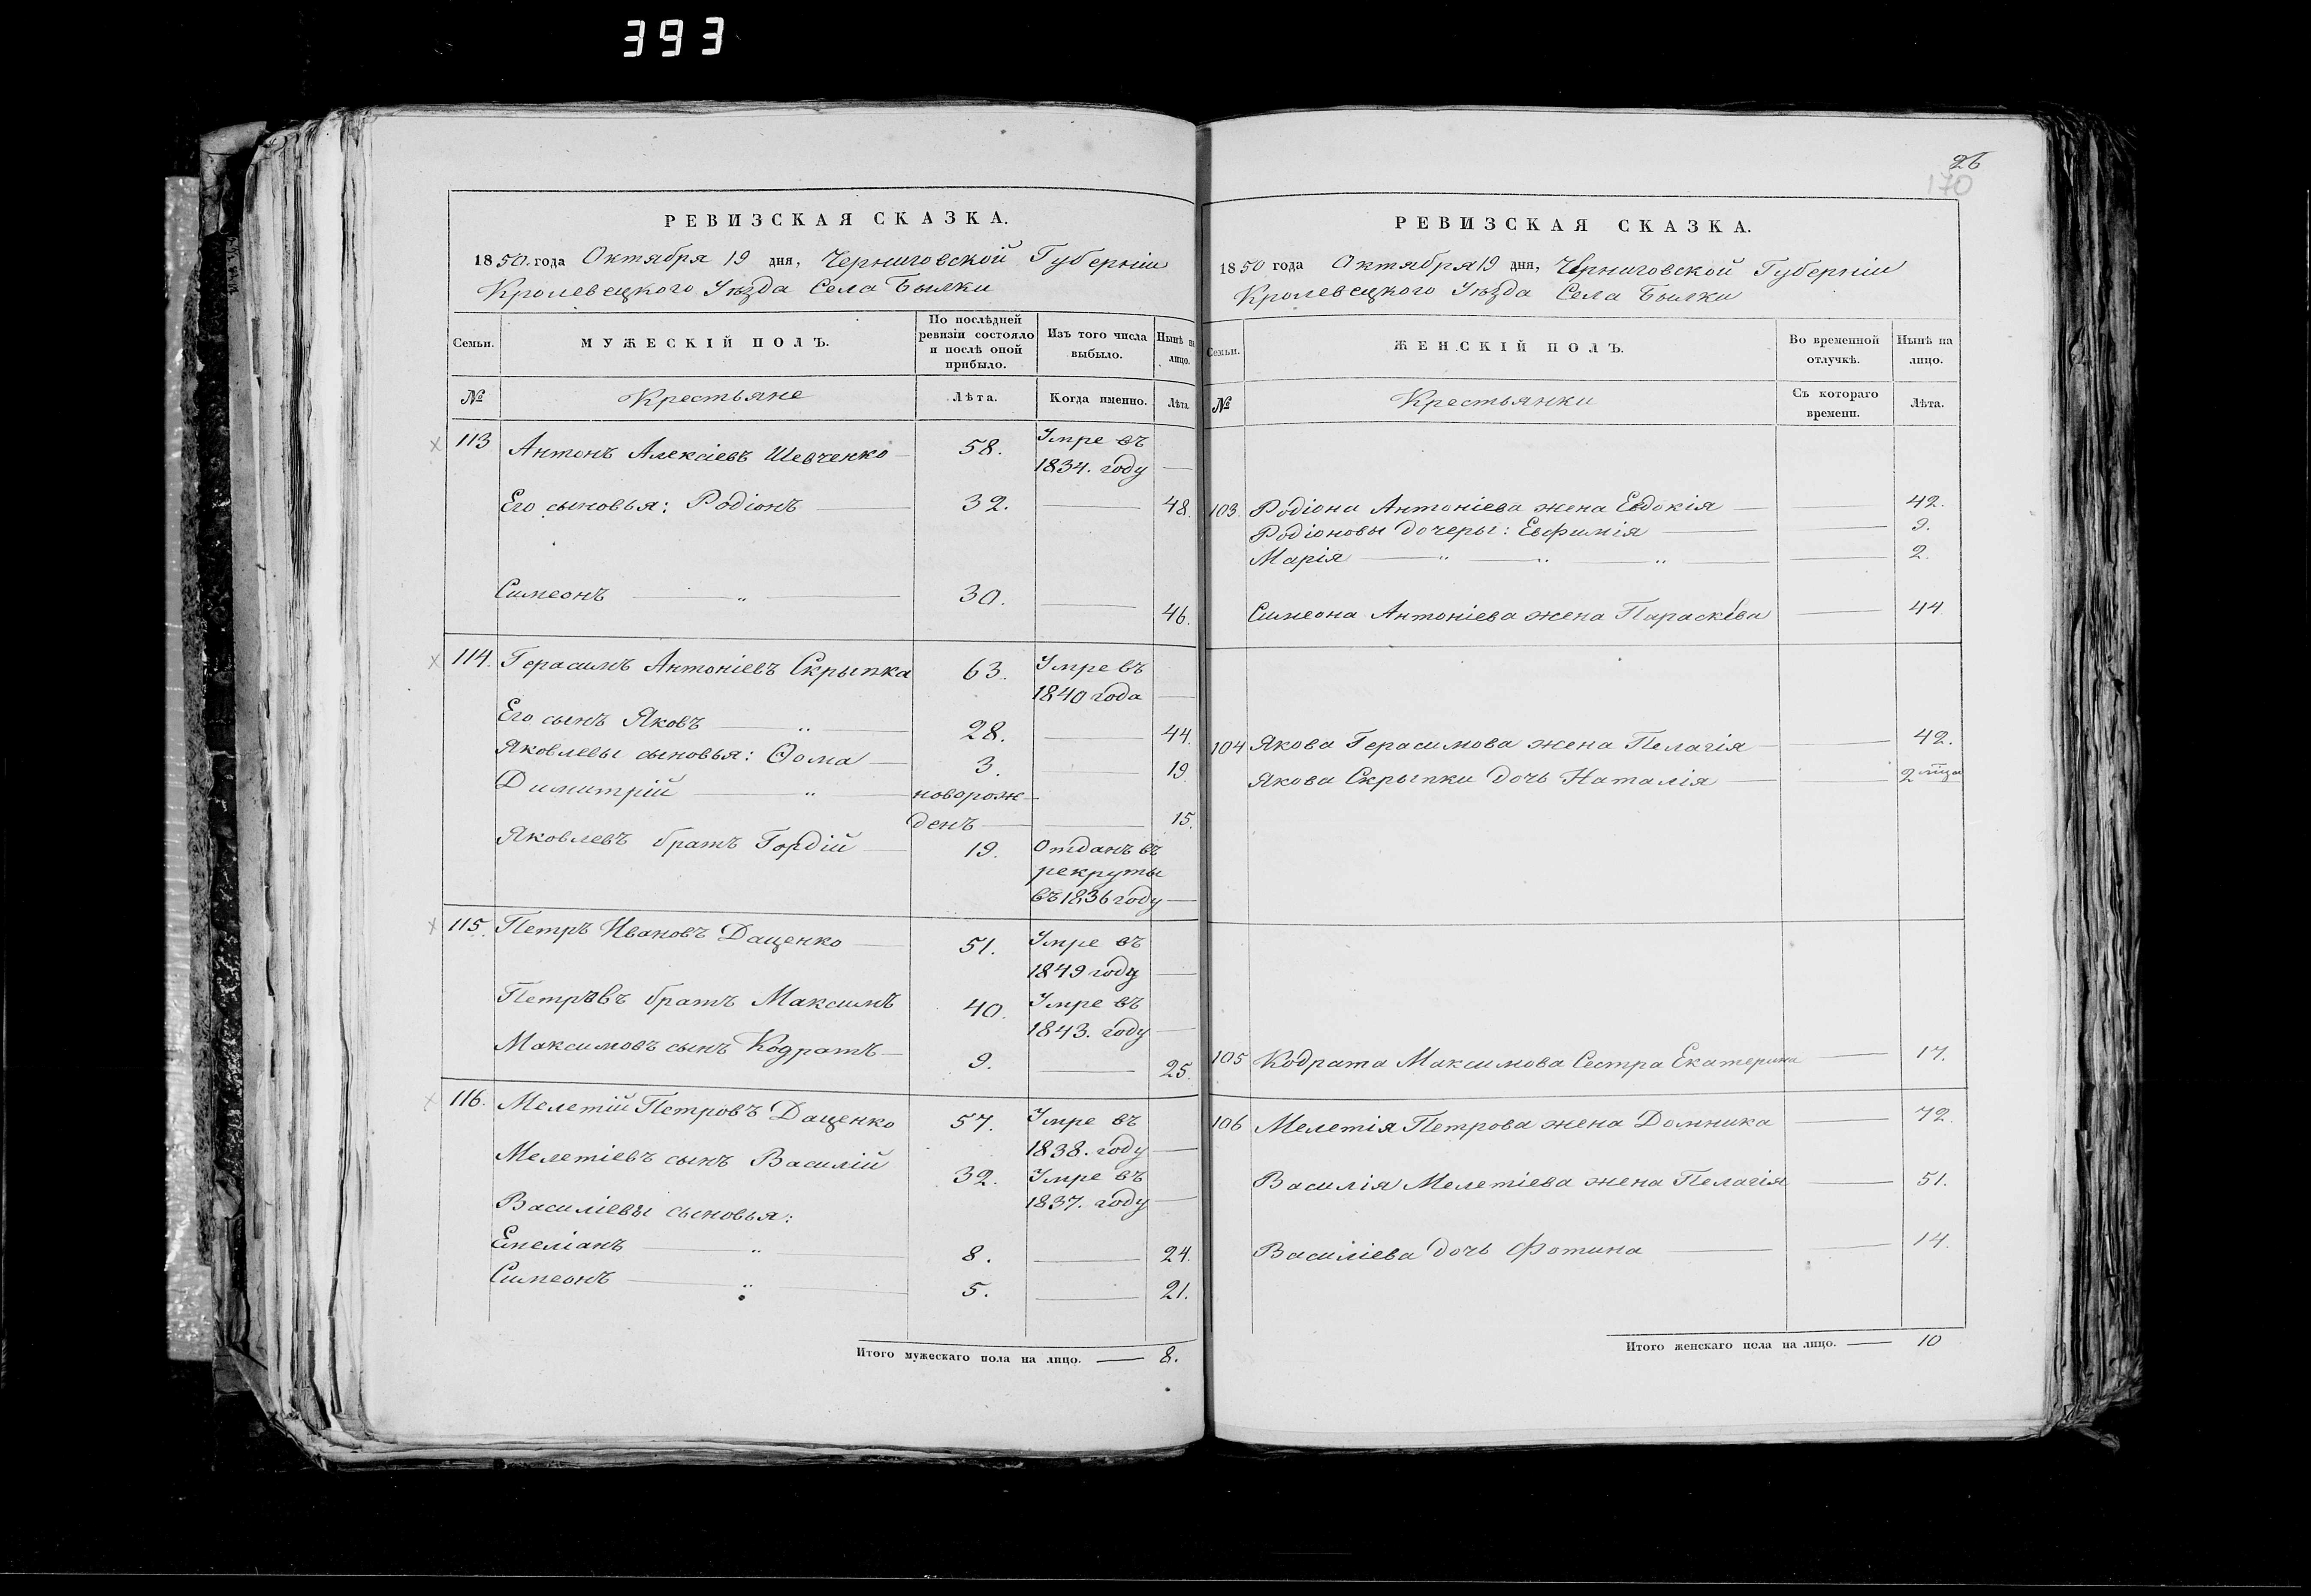 393
РЕВИЗСКАЯ СКАЗКА.
1850. года Октября 19 дня, Черниговской Губерніи
Кролевецкого Уѣзда Села Быжи
Семьи. МУЖЕСКІЙ ПОЛЪ. По послѣдней ревизіи состояло и послѣ оной прибыло. Изъ того числа выбыло. Нынѣ на лицо.
№ Крестьяне Лѣта. Когда именно. Лѣта.
113 Антонъ Алексіевъ Шевченко 58. Умре въ
1834. году
Его сыновья: Родіонъ 32. 48.
Симеонъ " 30. 46.
114. Герасимъ Антоніевъ Скрыпка 63. Умре въ
1840 года
Его сынъ Яковъ " 28. 44.
Яковлевы сыновья: Ѳома 3. 19
Димитрій " новорож-
денъ 15.
Яковлевъ братъ Гордій 19. Отданъ въ
рекруты
въ 1836 году
115. Петръ Ивановъ Даценко 51. Умре въ
1849 году
Петровъ братъ Максимъ 40. Умре въ
1843. году
Максимовъ сынъ Кодратъ 9. 25.
116. Мелетій Петровъ Даценко 57. Умре въ
1838. году
Мелетіевъ сынъ Василій 32. Умре въ
1837. году
Василіевы сыновья:
Емеліанъ " 8. 24.
Симеонъ " 5. 21.
Итого мужескаго пола на лицо. 8.
26
170
РЕВИЗСКАЯ СКАЗКА.
1850 года Октября 19 дня, Черниговской Губерніи
Кролевецкого Уѣзда Села Быжи
Семьи. ЖЕНСКІЙ ПОЛЪ. Во временной отлучкѣ. Нынѣ на лицо.
№ Крестьянки Съ котораго времени. Лѣта.
103. Родіона Антоніева жена Евдокія 42.
Родіоновы дочеры: Евфимія 9.
Марія " " " 2.
Симеона Антоніева жена Параскева 44.
104 Якова Герасимова жена Пелагія 42.
Якова Скрыпки дочь Наталія 2 мца
105 Кодрата Максимова Сестра Екатерина 17.
106 Мелетія Петрова жена Домника 72.
Василія Мелетіева жена Пелагія 51.
Василіева дочь Фотина 14.
Итого женскаго пола на лицо. 10